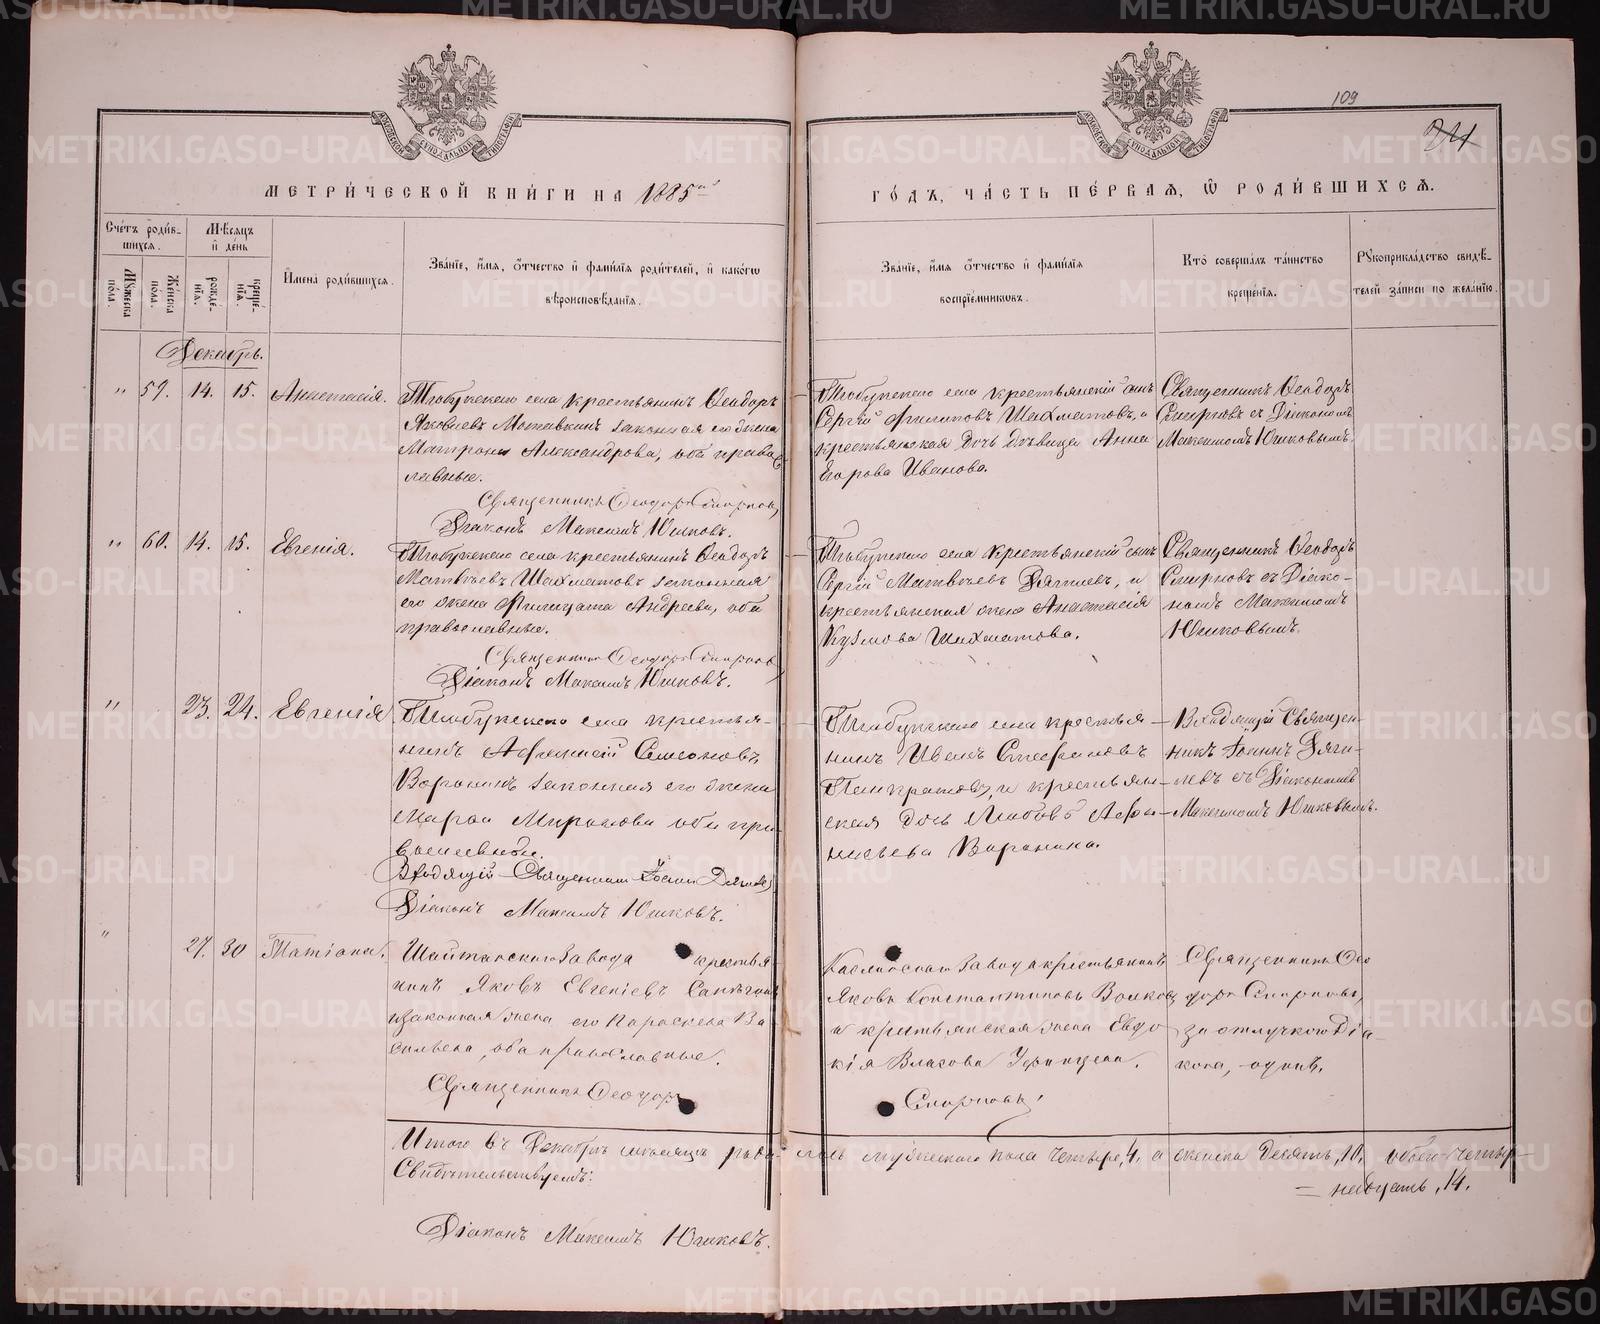 109
МЕТРИ́ЧЕСКОЙ КНИ́ГИ НА 1885ый
ГО́ДЪ, ЧА́СТЬ ПЕ́РВАѦ, Ѿ РОДИ́ВШИХСѦ.
Сче́тъ роди́в-
шихсѧ.
Мѣ́сѧцъ
и де́нь
Мꙋжеска по́ла.
Же́нска по́ла.
рожде́-
нїѧ.
креще́-
нїѧ.
И҆мена̀ роди́вшихсѧ.
Зва́нїе, и҆́мѧ, ѻ҆́тчество и҆ фами́лїѧ роди́телей, и҆ како́гѡ
вѣроисповѣ́данїѧ.
Зва́нїе, и҆́мѧ ѻ҆́тчество и҆ фами́лїѧ
воспрїе́мниковъ.
Кто̀ соверша́лъ та́инство
креще́нїѧ.
Рꙋкоприкла́дство свидѣ́-
телей за́писи по жела́нїю.
Декабрь.
" 59. 14. 15. Анастасія.
села крестьянинъ Ѳеодоръ
Яковлевъ законная его жена
Матрона Александрова, оба право
славные.
Священникъ Ѳеодоръ Смирновъ
Діаконъ Максимъ Юшковъ.
села крестьянскій сынъ
Сергій Филиповъ Шахматовъ, и
крестьянская дочь дѣвица Анна
Егорова Иванова.
Священникъ Ѳеодоръ
Смирновъ съ Діакономъ
Максимомъ Юшковымъ.
" 60. 14. 15. Евгенія.
села крестьянинъ Ѳеодоръ
Матвѣевъ Шахматовъ законная
его жена Филицата Андреева, оба
православные.
Священникъ Ѳеодоръ Смирновъ
Діаконъ Максимъ Юшковъ.
села крестьянскій сынъ
Сергій Матвѣевъ и
крестьянская жена Анастасія
Кузмова Шахматова.
Священникъ Ѳеодоръ
Смирновъ съ Діако-
номъ Максимомъ
Юшковымъ.
" 23. 24. Евгенія.
села крестья-
нинъ Афанасій Симеоновъ
Воронинъ законная его жена
Марѳа Миронова оба пра-
вославные.
Священникъ Іоаннъ
Діаконъ Максимъ Юшковъ.
села крестья-
нинъ Иванъ Стефановъ
Панкратовъ, и крестьян-
ская дочь Любовь Афа-
насьева Воронина.
Священ-
никъ Іоаннъ
съ Діакономъ
Максимомъ Юшковымъ.
" 27. 30 Татіана.
Шайтанскаго Завода крестья-
нинъ Яковъ Евгеніевъ
и законная жена его Параскева Ва
сильева, оба православные.
Священникъ Ѳеодоръ
Смирновъ
Каслинскаго Завода крестьянинъ
Яковъ Константиновъ Волковъ
и крестьянская жена Евдо
кія Власова
Священникъ Ѳео
доръ Смирновъ,
за отлучкою Діа-
кона, одинъ.
Итого въ Декабрѣ мѣсяцѣ роди лось мужескаго пола четыре, 4, а женска десять, 10, обоего четыр
= надцать, 14.
Свидѣтельствуемъ:
Діаконъ Максимъ Юшковъ.
METRIKI.GASO-URAL.RU